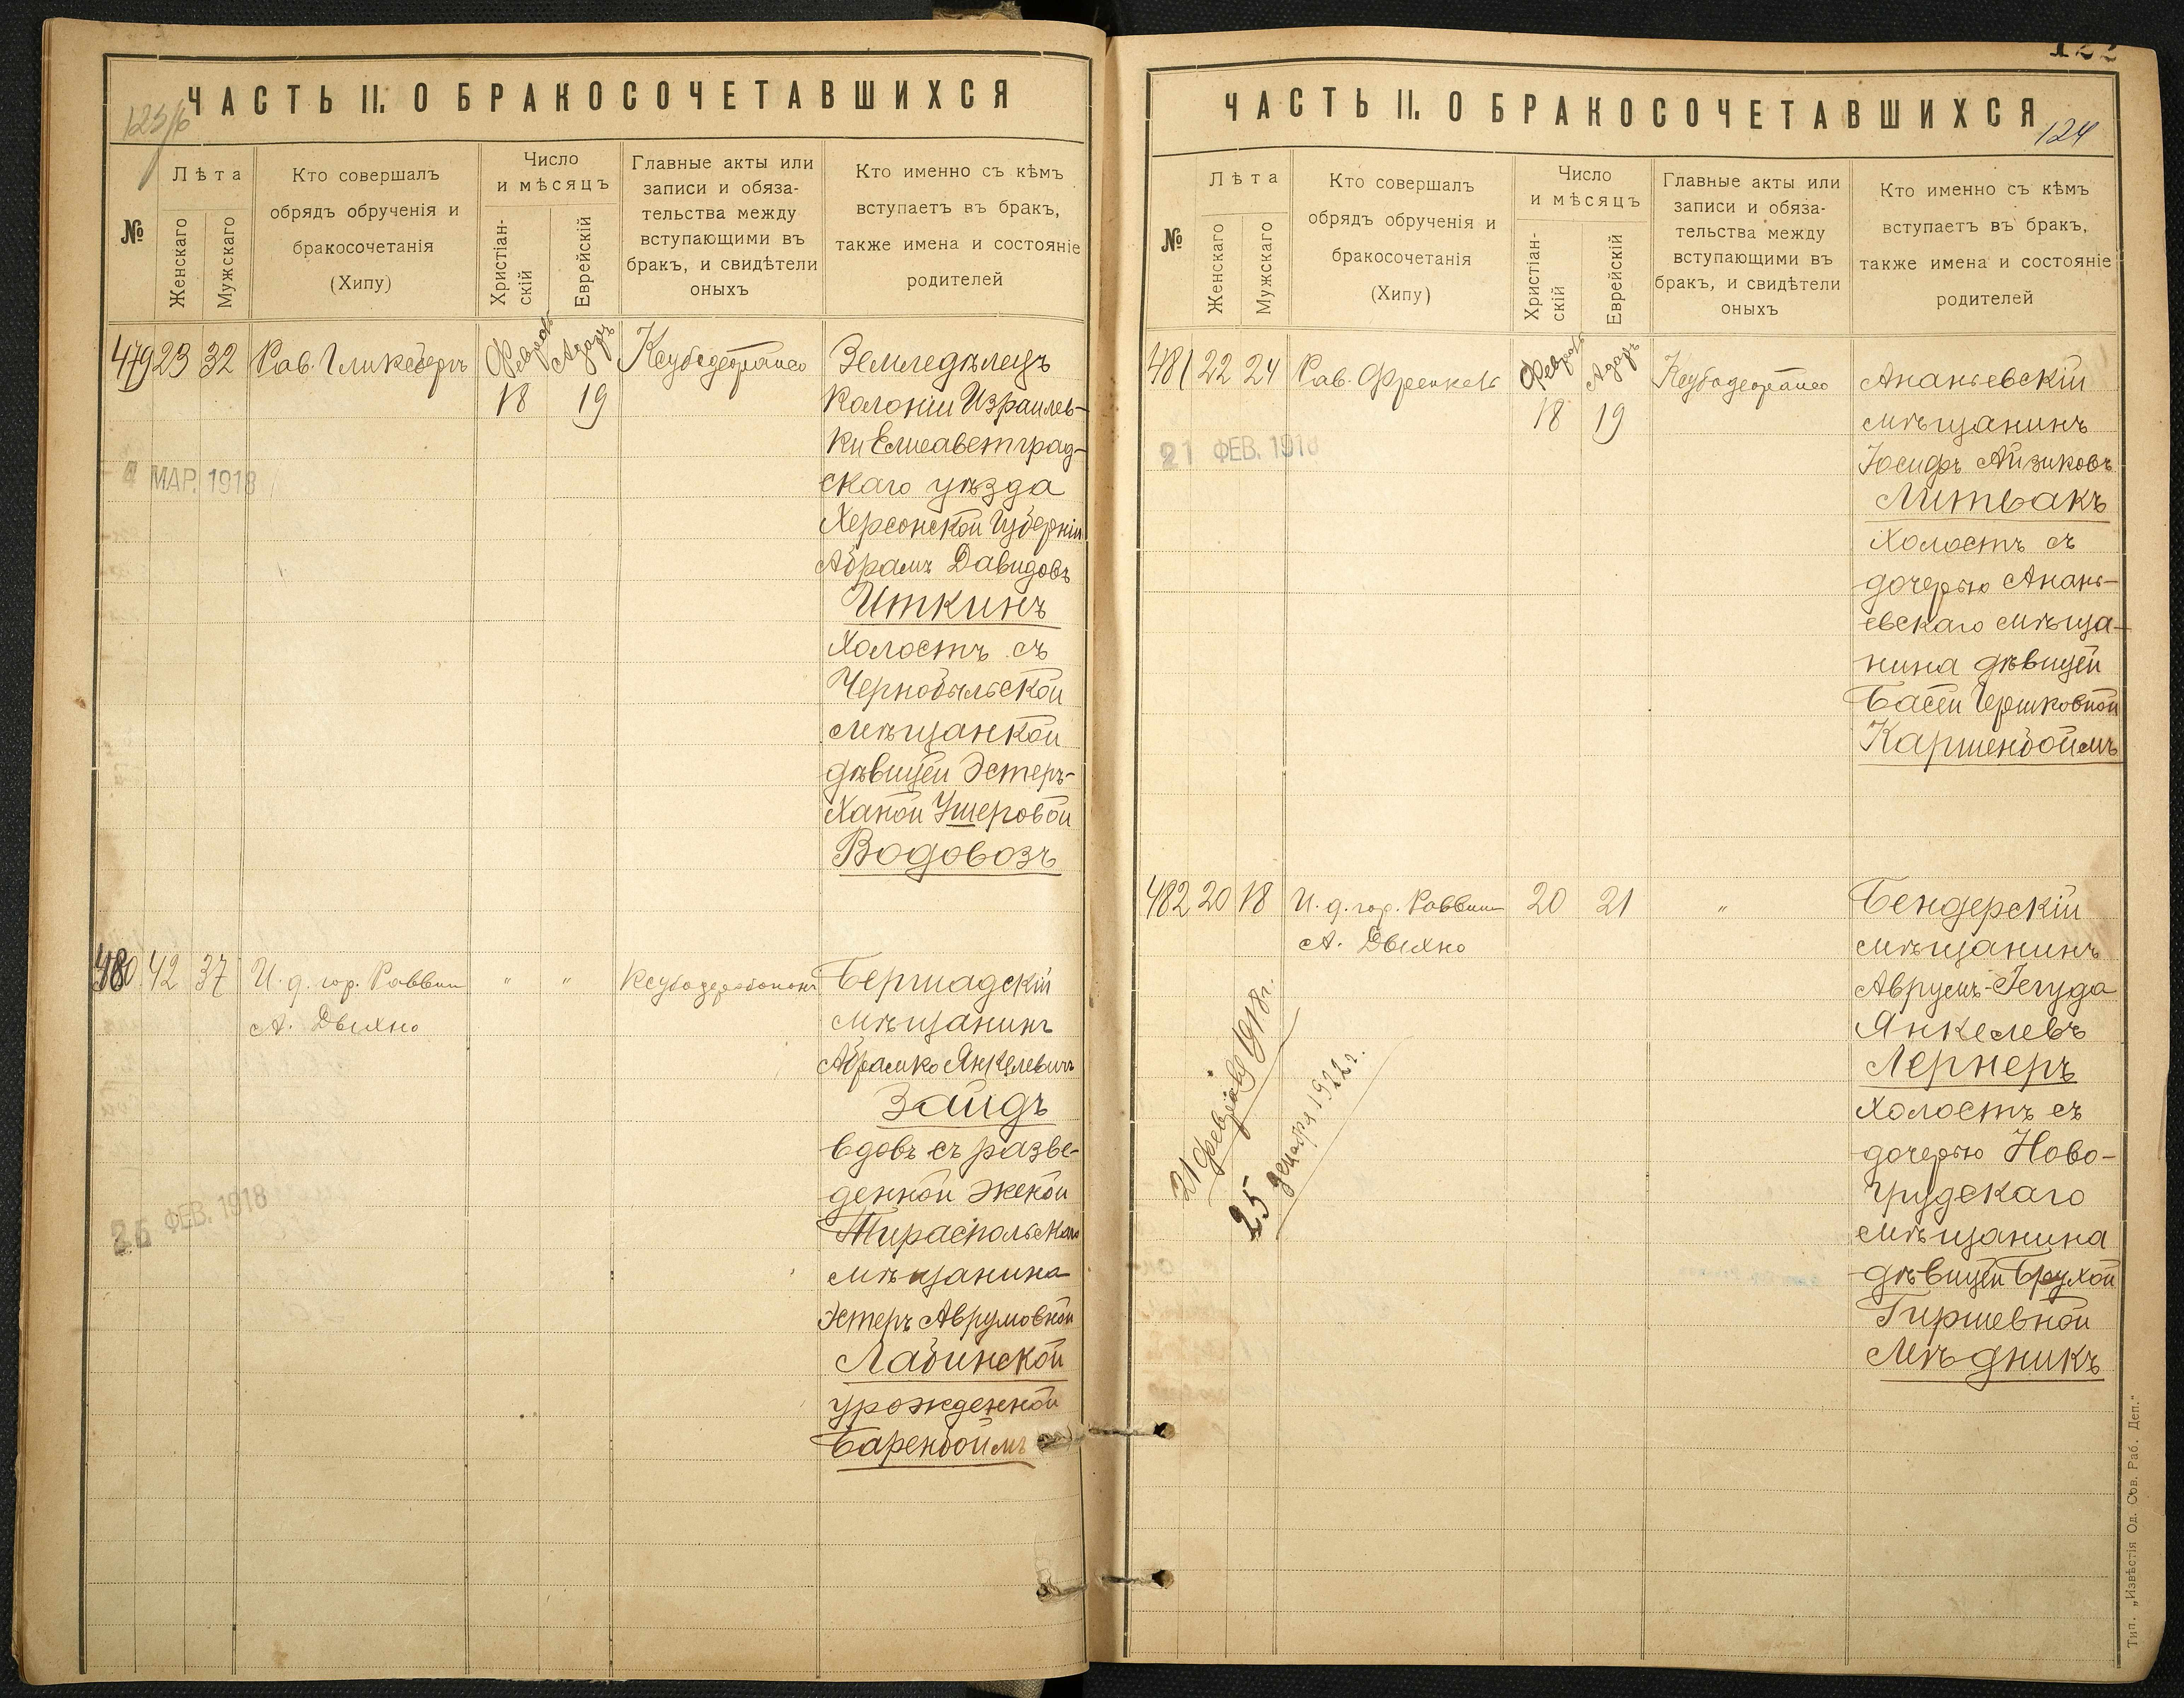 ЧАСТЬ II. О БРАКОСОЧЕТАВШИХСЯ
№
Лѣта
Женскаго
Мужскаго
Кто совершалъ
обрядъ обрученія и
бракосочетанія
(Хипу)
Число
и мѣсяцъ
Христіан-
скій
Еврейскій
Главные акты или
записи и обяза-
тельства между
вступающими въ
бракъ, и свидѣтели
оныхъ
Кто именно съ кѣмъ
вступаетъ въ бракъ,
также имена и состояніе
родителей
479 23 32 Рав. Гликсбергъ Февраль Адаръ
18 19
Земледѣлецъ
Колоніи Израилев-
ки Елисаветград-
скаго уѣзда
Херсонской Губерніи
Абрамъ Давидовъ
Иткинъ
Холостъ съ
Чернобыльской
мѣщанкой
дѣвицей Эстеръ-
Ханой Ушеровой
Водовозъ
4 МАР. 1918
480 42 37 И. д. гор. Раввин " "
А. Двихно
Бершадскій
мѣщанинъ
Абрамко Янкелевичъ
Зайдъ
вдовъ съ разве-
денной женой
Тираспольскаго
мѣщанина
Эстеръ Аврумовной
Лабинской
урожденной
Баренбоймъ
26 ФЕВ. 1918
ЧАСТЬ II. О БРАКОСОЧЕТАВШИХСЯ
124
№
Лѣта
Женскаго
Мужскаго
Кто совершалъ
обрядъ обрученія и
бракосочетанія
(Хипу)
Число
и мѣсяцъ
Христіан-
скій
Еврейскій
Главные акты или
записи и обяза-
тельства между
вступающими въ
бракъ, и свидѣтели
оныхъ
Кто именно съ кѣмъ
вступаетъ въ бракъ,
также имена и состояніе
родителей
481 22 24 Рав. Френкель Февраль Адаръ
18 19
Ананьевскій
мѣщанинъ
Іосифъ Айзиковъ
Литвакъ
Холостъ съ
дочерью Анань-
евскаго мѣща-
нина дѣвицей
Басей Гершковной
Каршенбоймъ
21 ФЕВ. 1918
482 20 18 И. д. гор. Раввин 20 21 "
А. Двихно
Бендерскій
мѣщанинъ
Аврумъ-Іегуда
Янкелевъ
Лернеръ
Холостъ съ
дочерью Ново-
грудскаго
мѣщанина
дѣвицей Брухой
Гиршевной
Мѣдникъ
21 февраля 1918 г.
25 декабря 1922 г.
Тип. „Извѣстія Од. Сов. Раб. Деп."